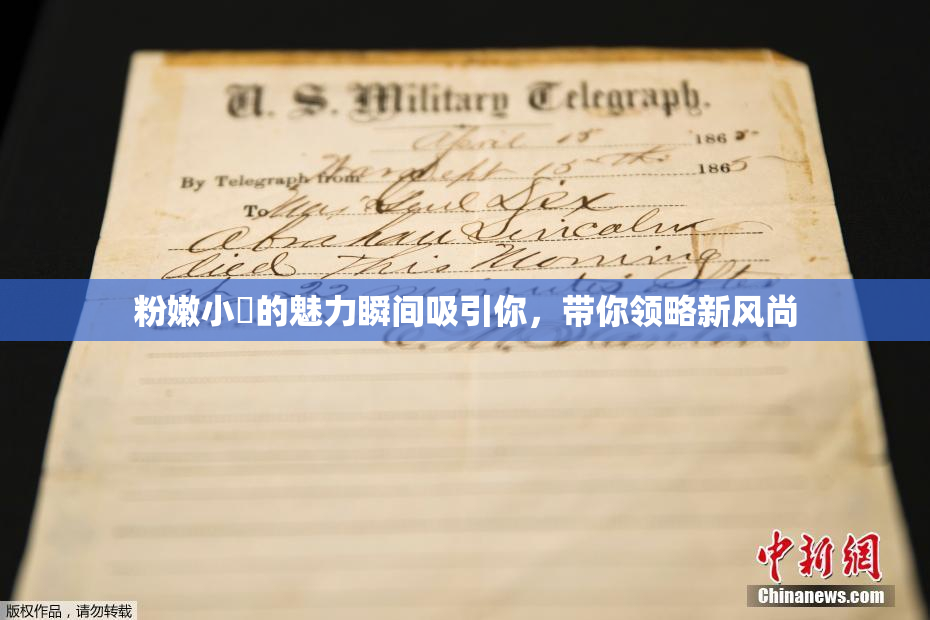 U. S. Military Telegraph.
April 15 1865
By Telegraph from War Dept 15th 1865
To Maj Genl Dix
Abraham Lincoln
died This Morning
22 minutes after
粉嫩小的魅力瞬间吸引你，带你领略新风尚
中新網
Chinanews.com
版权作品，请勿转载